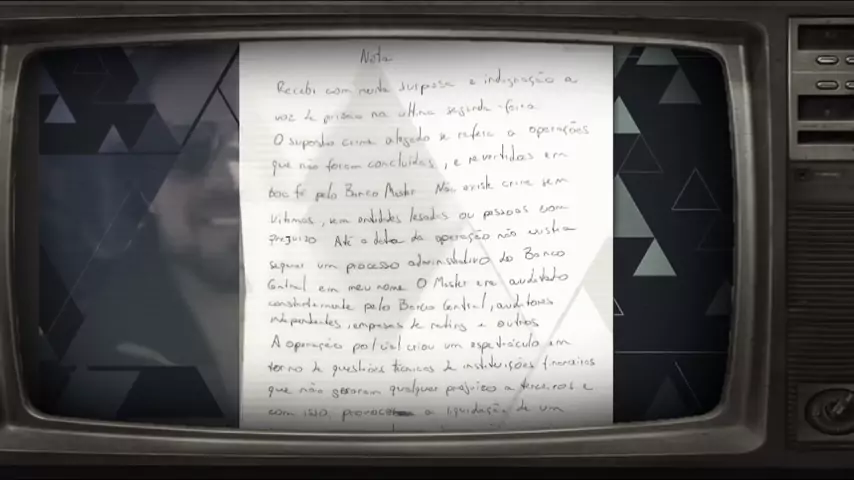 Nota
Recebi com muita surpresa e indignação a
voz de prisão na ultima segunda-feira
O suposto crime alegado se refere a operações
que não foram concluidas, e revertidas em
boa fé pelo Banco Master. Não existe crime sem
vitimas, sem entidades lesadas ou pessoas com
prejuizo. Até a data da operação não existia
sequer um processo administrativo do Banco
Central em meu nome. O Master era auditado
constantemente pelo Banco Central, auditores
independentes, empresas de rating e outros
A operação policial criou um espetráculo em
torno de questões técnicas de instituições financeiras
que não geraram qualquer prejuizo a terceiros e
com isso, provocar a liquidação de um